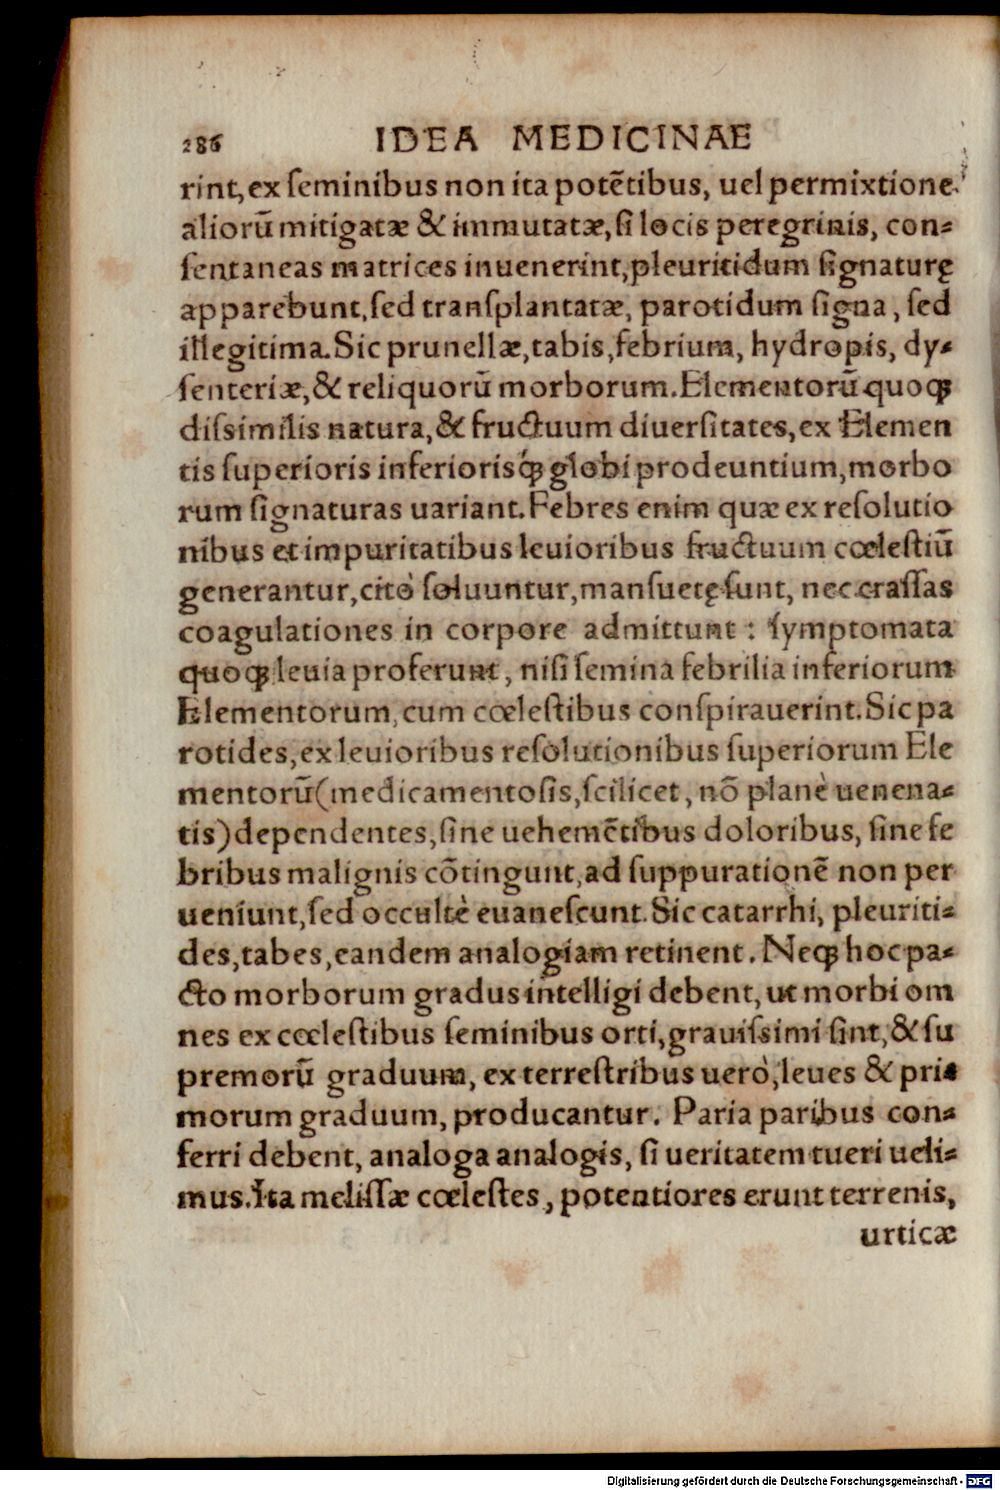 286 IDEA MEDICINAE
rint, ex ſeminibus non ita potẽtibus, uel permixtione
aliorũ mitigatæ & immutatæ, ſi locis peregrinis, con-
ſentaneas matrices inuenerint, pleuritidum ſignaturę
apparebunt, ſed tranſplantatæ, parotidum ſigna, ſed
illegitima. Sic prunellæ, tabis, febrium, hydropis, dy-
ſenteriæ, & reliquorũ morborum. Elementorũ quoqꝫ
diſsimilis natura, & fructuum diuerſitates, ex Elemen
tis ſuperioris inferiorisqꝫ́ globi prodeuntium, morbo
rum ſignaturas uariant. Febres enim quæ ex reſolutio
nibus et impuritatibus leuioribus fructuum cœleſtiũ
generantur, citò ſoluuntur, manſuetę ſunt, nec craſſas
coagulationes in corpore admittunt : ſymptomata
quoqꝫ leuia proferunt, niſi ſemina febrilia inferiorum
Elementorum, cum cœleſtibus conſpirauerint. Sic pa
rotides, ex leuioribus reſolutionibus ſuperiorum Ele
mentorũ (medicamentoſis, ſcilicet, nõ planè uenena-
tis) dependentes, ſine uehemẽtibus doloribus, ſine fe
bribus malignis cõtingunt, ad ſuppurationẽ non per
ueniunt, ſed occultè euaneſcunt. Sic catarrhi, pleuriti-
des, tabes, eandem analogiam retinent. Neqꝫ hoc pa-
cto morborum gradus intelligi debent, ut morbi om
nes ex cœleſtibus ſeminibus orti, grauiſsimi ſint, & ſu
premorũ graduum, ex terreſtribus uerò, leues & pri-
morum graduum, producantur. Paria paribus con-
ferri debent, analoga analogis, ſi ueritatem tueri ueli-
mus. Ita meliſſæ cœleſtes, potentiores erunt terrenis,
urticæ
Digitalisierung gefördert durch die Deutsche Forschungsgemeinschaft - DFG